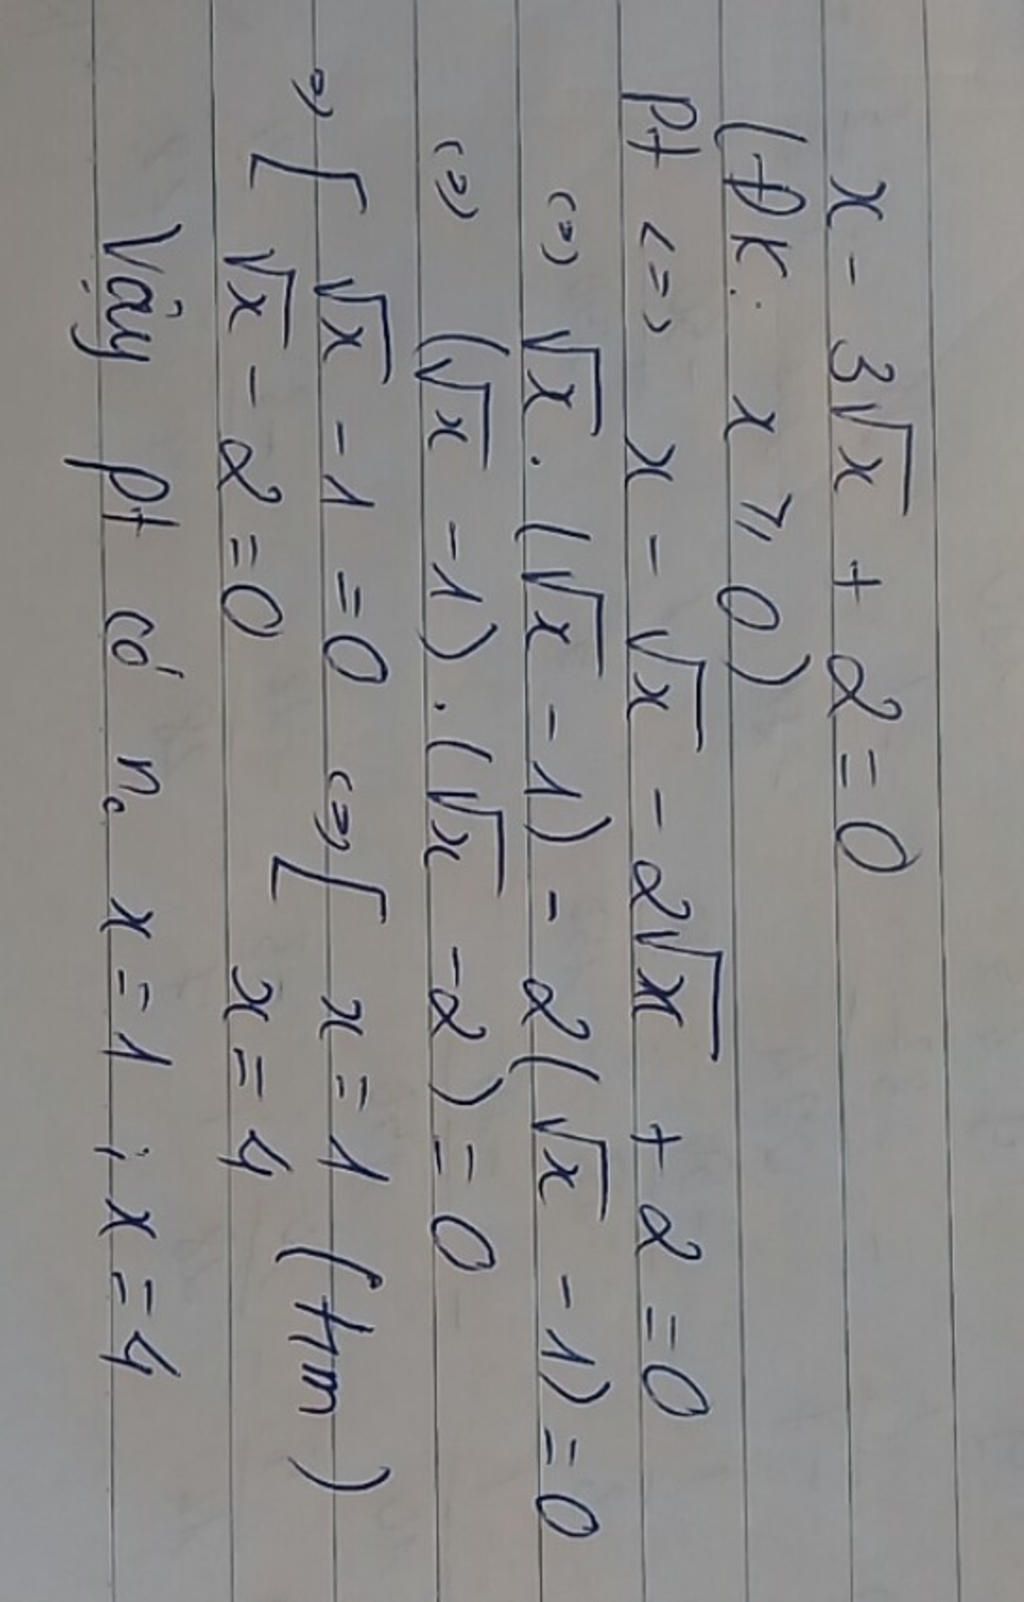 x - 3√x + 2 = 0
(ĐK: x ⩾ 0)
Pt <=> x - √x - 2√x + 2 = 0
<=> √x . (√x - 1) - 2(√x - 1) = 0
<=> (√x - 1) . (√x - 2) = 0
=> [ √x - 1 = 0 <=> [ x = 1 (tm)
√x - 2 = 0 x = 4
Vậy pt có no x = 1 ; x = 4